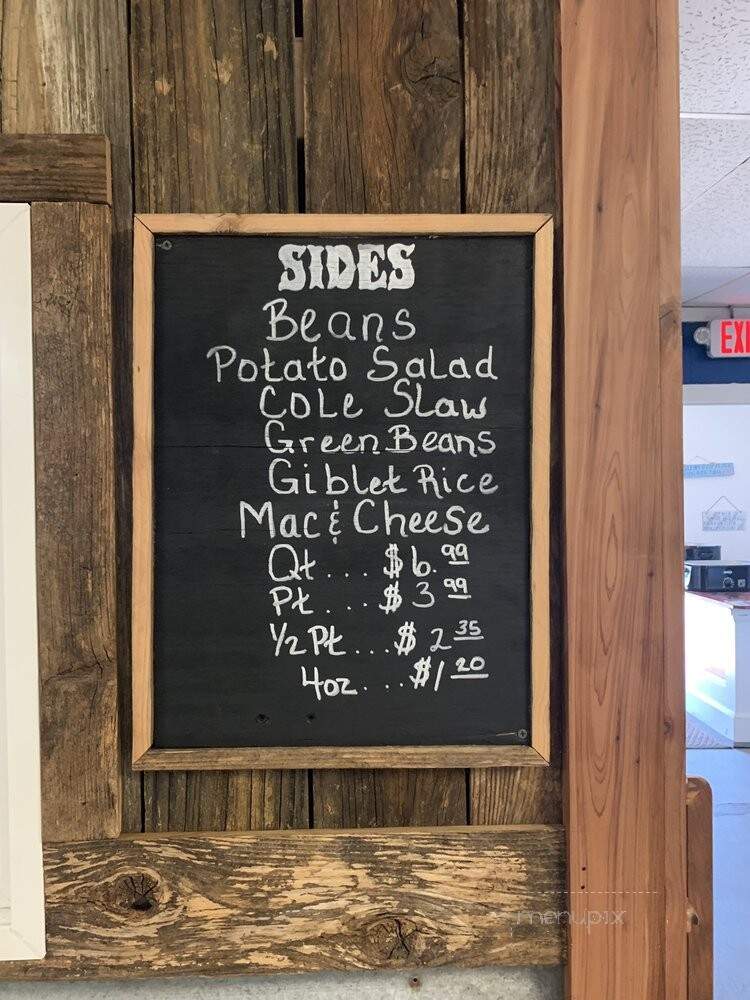 SIDES
Beans
Potato Salad
Cole Slaw
Green Beans
Giblet Rice
Mac & Cheese
Qt... $6.99
Pt... $3 99
1/2 Pt... $2 35
4oz... $1 20
EXI
menupix